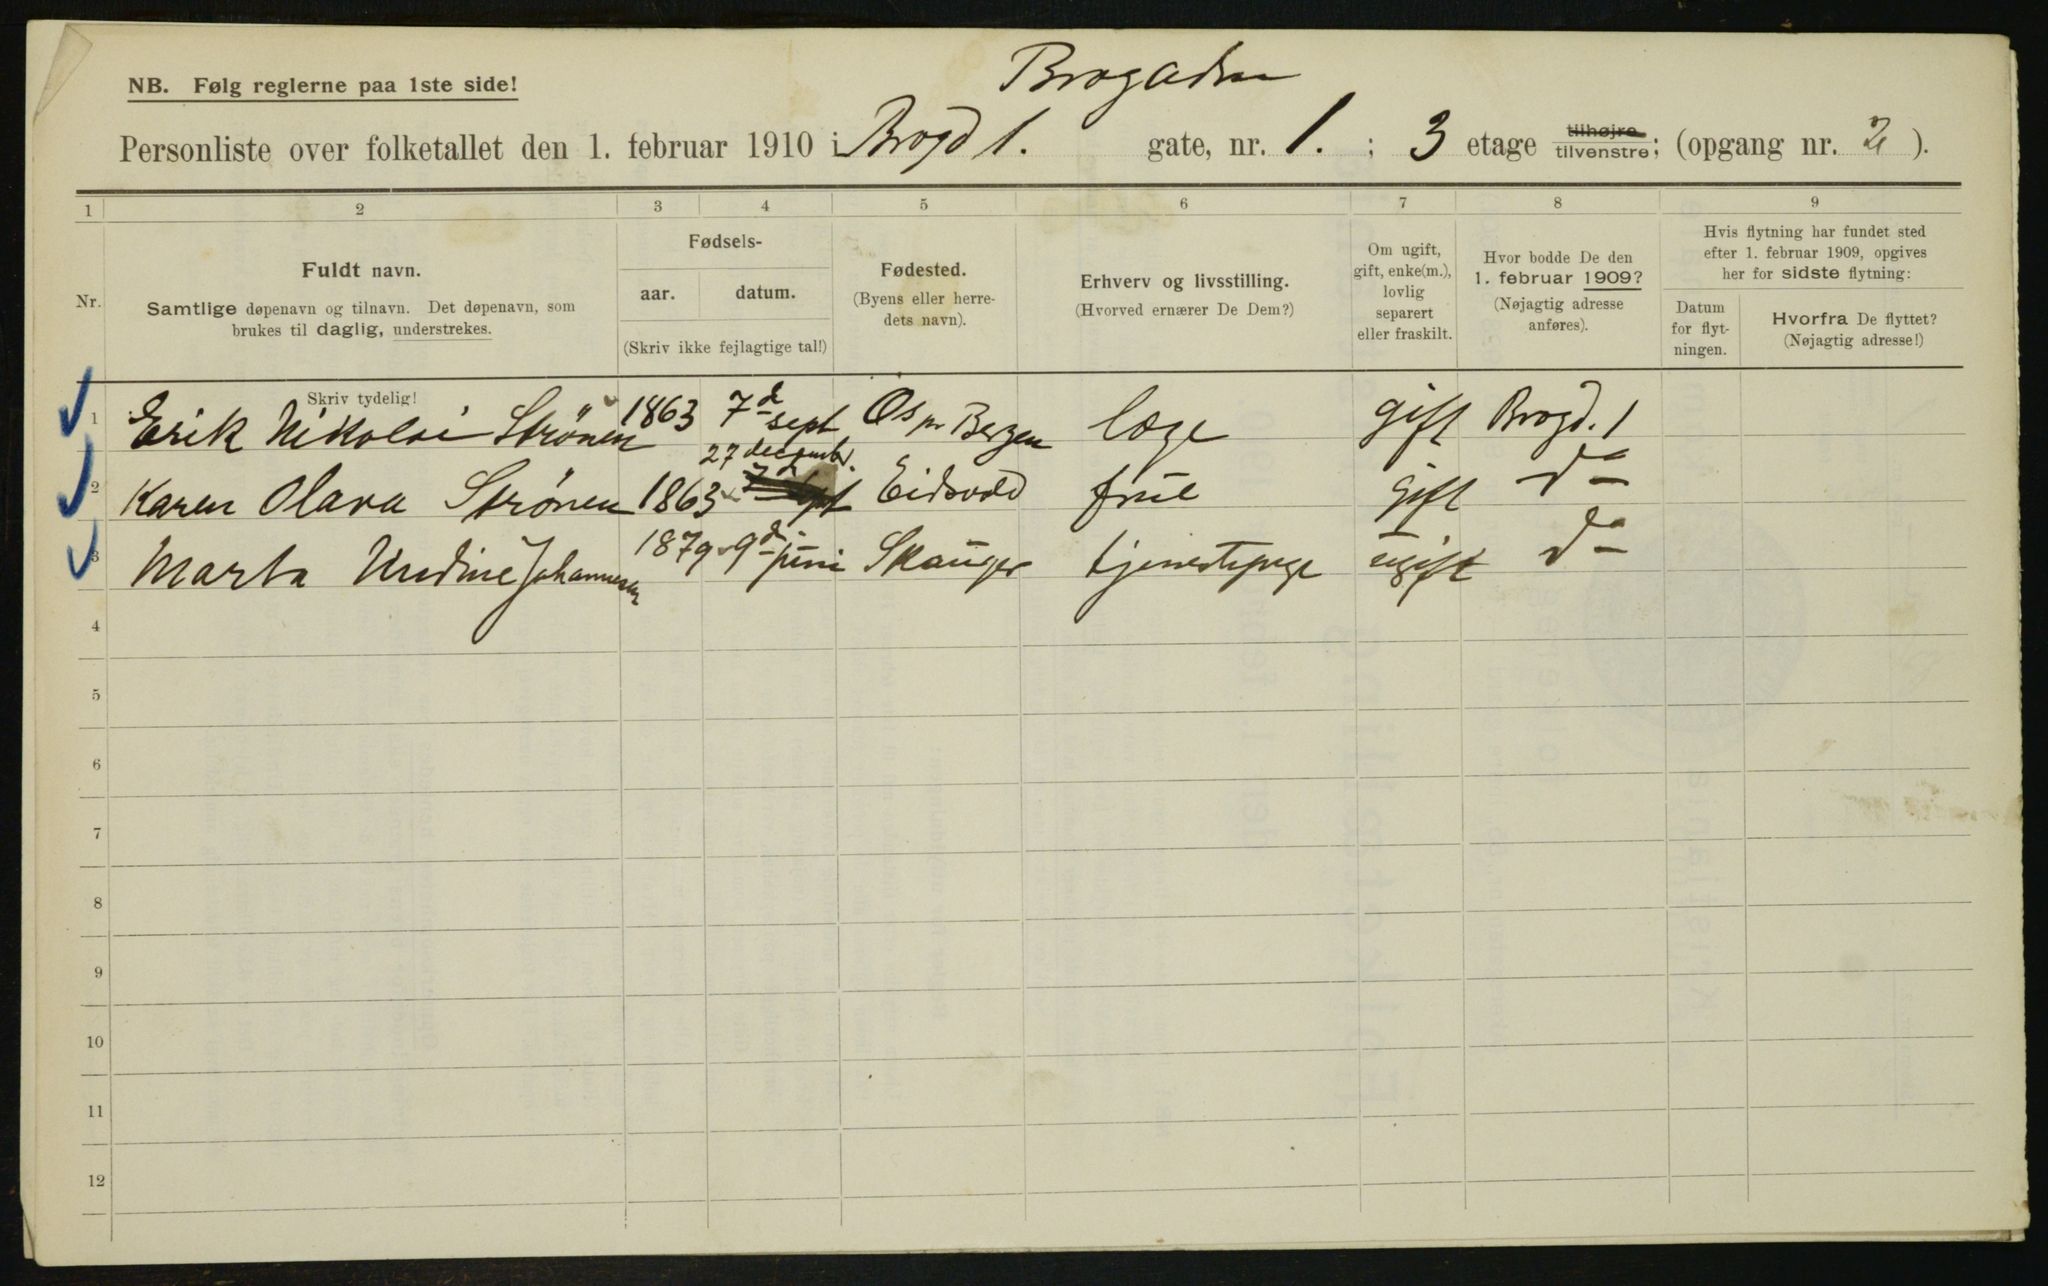 Brogaden
NB. Følg reglerne paa 1ste side!
Personliste over folketallet den 1. februar 1910 i Brogd 1. gate, nr. 1. ; 3 etage tilhøjre tilvenstre; (opgang nr. 2 ).
1 2 3 4 5 6 7 8 9
Nr.
Fuldt navn.
Samtlige døpenavn og tilnavn. Det døpenavn, som
brukes til daglig, understrekes.
Fødsels-
aar. datum.
(Skriv ikke fejlagtige tal!)
Fødested.
(Byens eller herre-
dets navn).
Erhverv og livsstilling.
(Hvorved ernærer De Dem?)
Om ugift,
gift, enke(m.),
lovlig
separert
eller fraskilt.
Hvor bodde De den
1. februar 1909?
(Nøjagtig adresse
anføres).
Hvis flytning har fundet sted
efter 1. februar 1909, opgives
her for sidste flytning:
Datum
for flyt-
ningen.
Hvorfra De flyttet?
(Nøjagtig adresse!)
Skriv tydelig!
1 Erik Nikolai Strönen 1863 7d sept Os pr Bergen læge gift Brogd. 1
27 december.
2 Karen Olava Strönen 1863 7d sept Eidsvold frue gift do
3 Marta Undine Johannesen 1879 9d juni Skauger tjenestepige ugift do
4
5
6
7
8
9
10
11
12